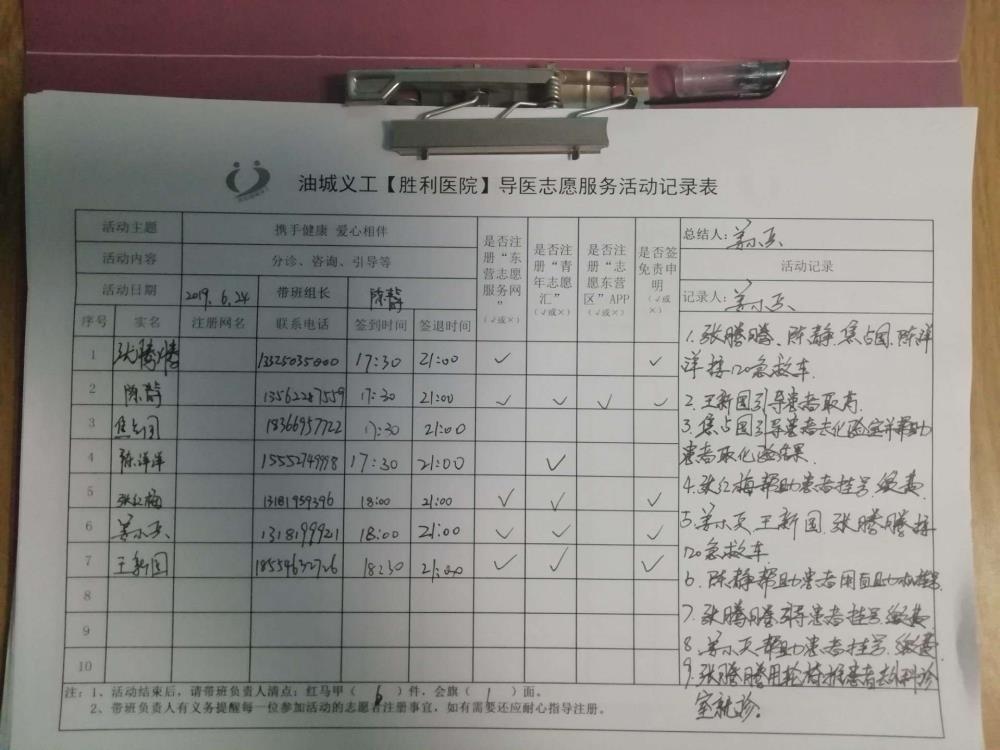 油城义工【胜利医院】导医志愿服务活动记录表
活动主题 携手健康 爱心相伴
活动内容 分诊、咨询、引导等
活动日期 2019.6.24 带班组长 陈静
序号 实名 注册网名 联系电话 签到时间 签退时间
是否注册“东营志愿服务网”(√或×)
是否注册“青年志愿汇”(√或×)
是否注册“志愿东营区”APP(√或×)
是否签免责申明(√或×)
1 张腾腾 17:30 21:00 √ √
2 陈静 13562247559 17:30 21:00 √ √ √ √
3 焦占国 18366957722 17:30 21:00
4 陈洋洋 15552749998 17:30 21:00 √
5 张红梅 13181959396 18:00 21:00 √ √ √
6 1318199921 18:00 21:00 √ √ √
7 王新国 18554632726 18:30 21:00 √ √ √
8
9
10
总结人:
活动记录
记录人:
1.张腾腾、陈静、焦占国、陈洋
洋接120急救车.
2.王新国引导患者取药.
3.焦占国引导患者去化验室并帮助
患者取化验结果.
4.张红梅帮助患者挂号、缴费.
5. 王新国、张腾腾接
120急救车.
6.陈静帮助患者用自助机挂号
7.张腾腾引导患者挂号、缴费
8. 帮助患者挂号、缴费
9.张腾腾用轮椅推患者去 科诊
室就诊.
注:1、活动结束后,请带班负责人清点:红马甲(6)件,会旗(1)面。
2、带班负责人有义务提醒每一位参加活动的志愿者注册事宜,如有需要还应耐心指导注册。